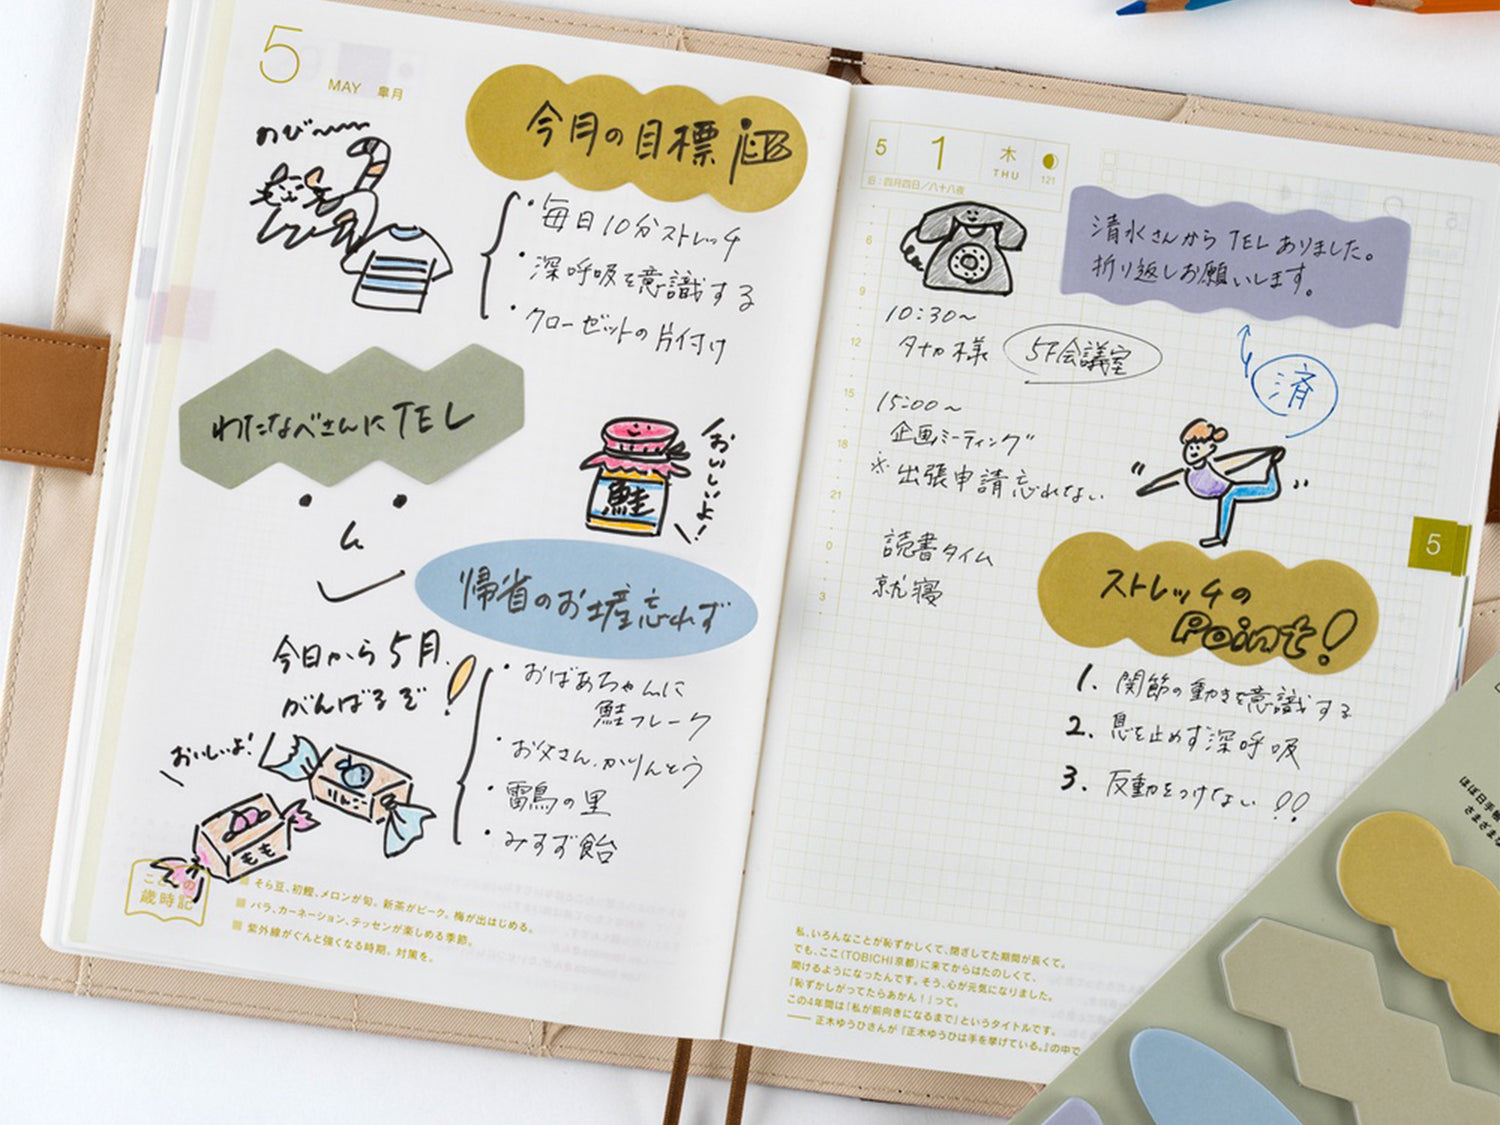 5
MAY 皐月
のび〜
今月の目標
・毎日10分ストレッチ
・深呼吸を意識する
・クローゼットの片付け
わたなべさんにTEL
おいしいよ!
鮭
帰省のお土産忘れず
今日から5月、
がんばるぞ!
・おばあちゃんに
鮭フレーク
・お父さん、かりんとう
・雷鳥の里
・みすず飴
おいしいよ!
りんご
もも
ことしの
歳時記
そら豆、初鰹、メロンが旬。新茶がピーク。梅が出はじめる。
バラ、カーネーション、テッセンが楽しめる季節。
紫外線がぐんと強くなる時期。対策を。
5 1 木 THU 121
旧:四月四日/八十八夜
清水さんからTELありました。
折り返しお願いします。
済
6
9
12
15
18
21
0
3
10:30〜
タナカ様 5F会議室
15:00〜
企画ミーティング
※出張申請忘れない
読書タイム
就寝
ストレッチの
Point!
1. 関節の動きを意識する
2. 息を止めず深呼吸
3. 反動をつけない!!
5
私、いろんなことが恥ずかしくて、閉ざしてた期間が長くて。
でも、ここ(TOBICHI京都)に来てからはたのしくて、
開けるようになったんです。そう、心が元気になりました。
「恥ずかしがってたらあかん!」って。
この4年間は「私が前向きになるまで」というタイトルです。
── 正木ゆうひさんが『正木ゆうひは手を挙げている。』の中で
ほぼ日手帳
さまざまな